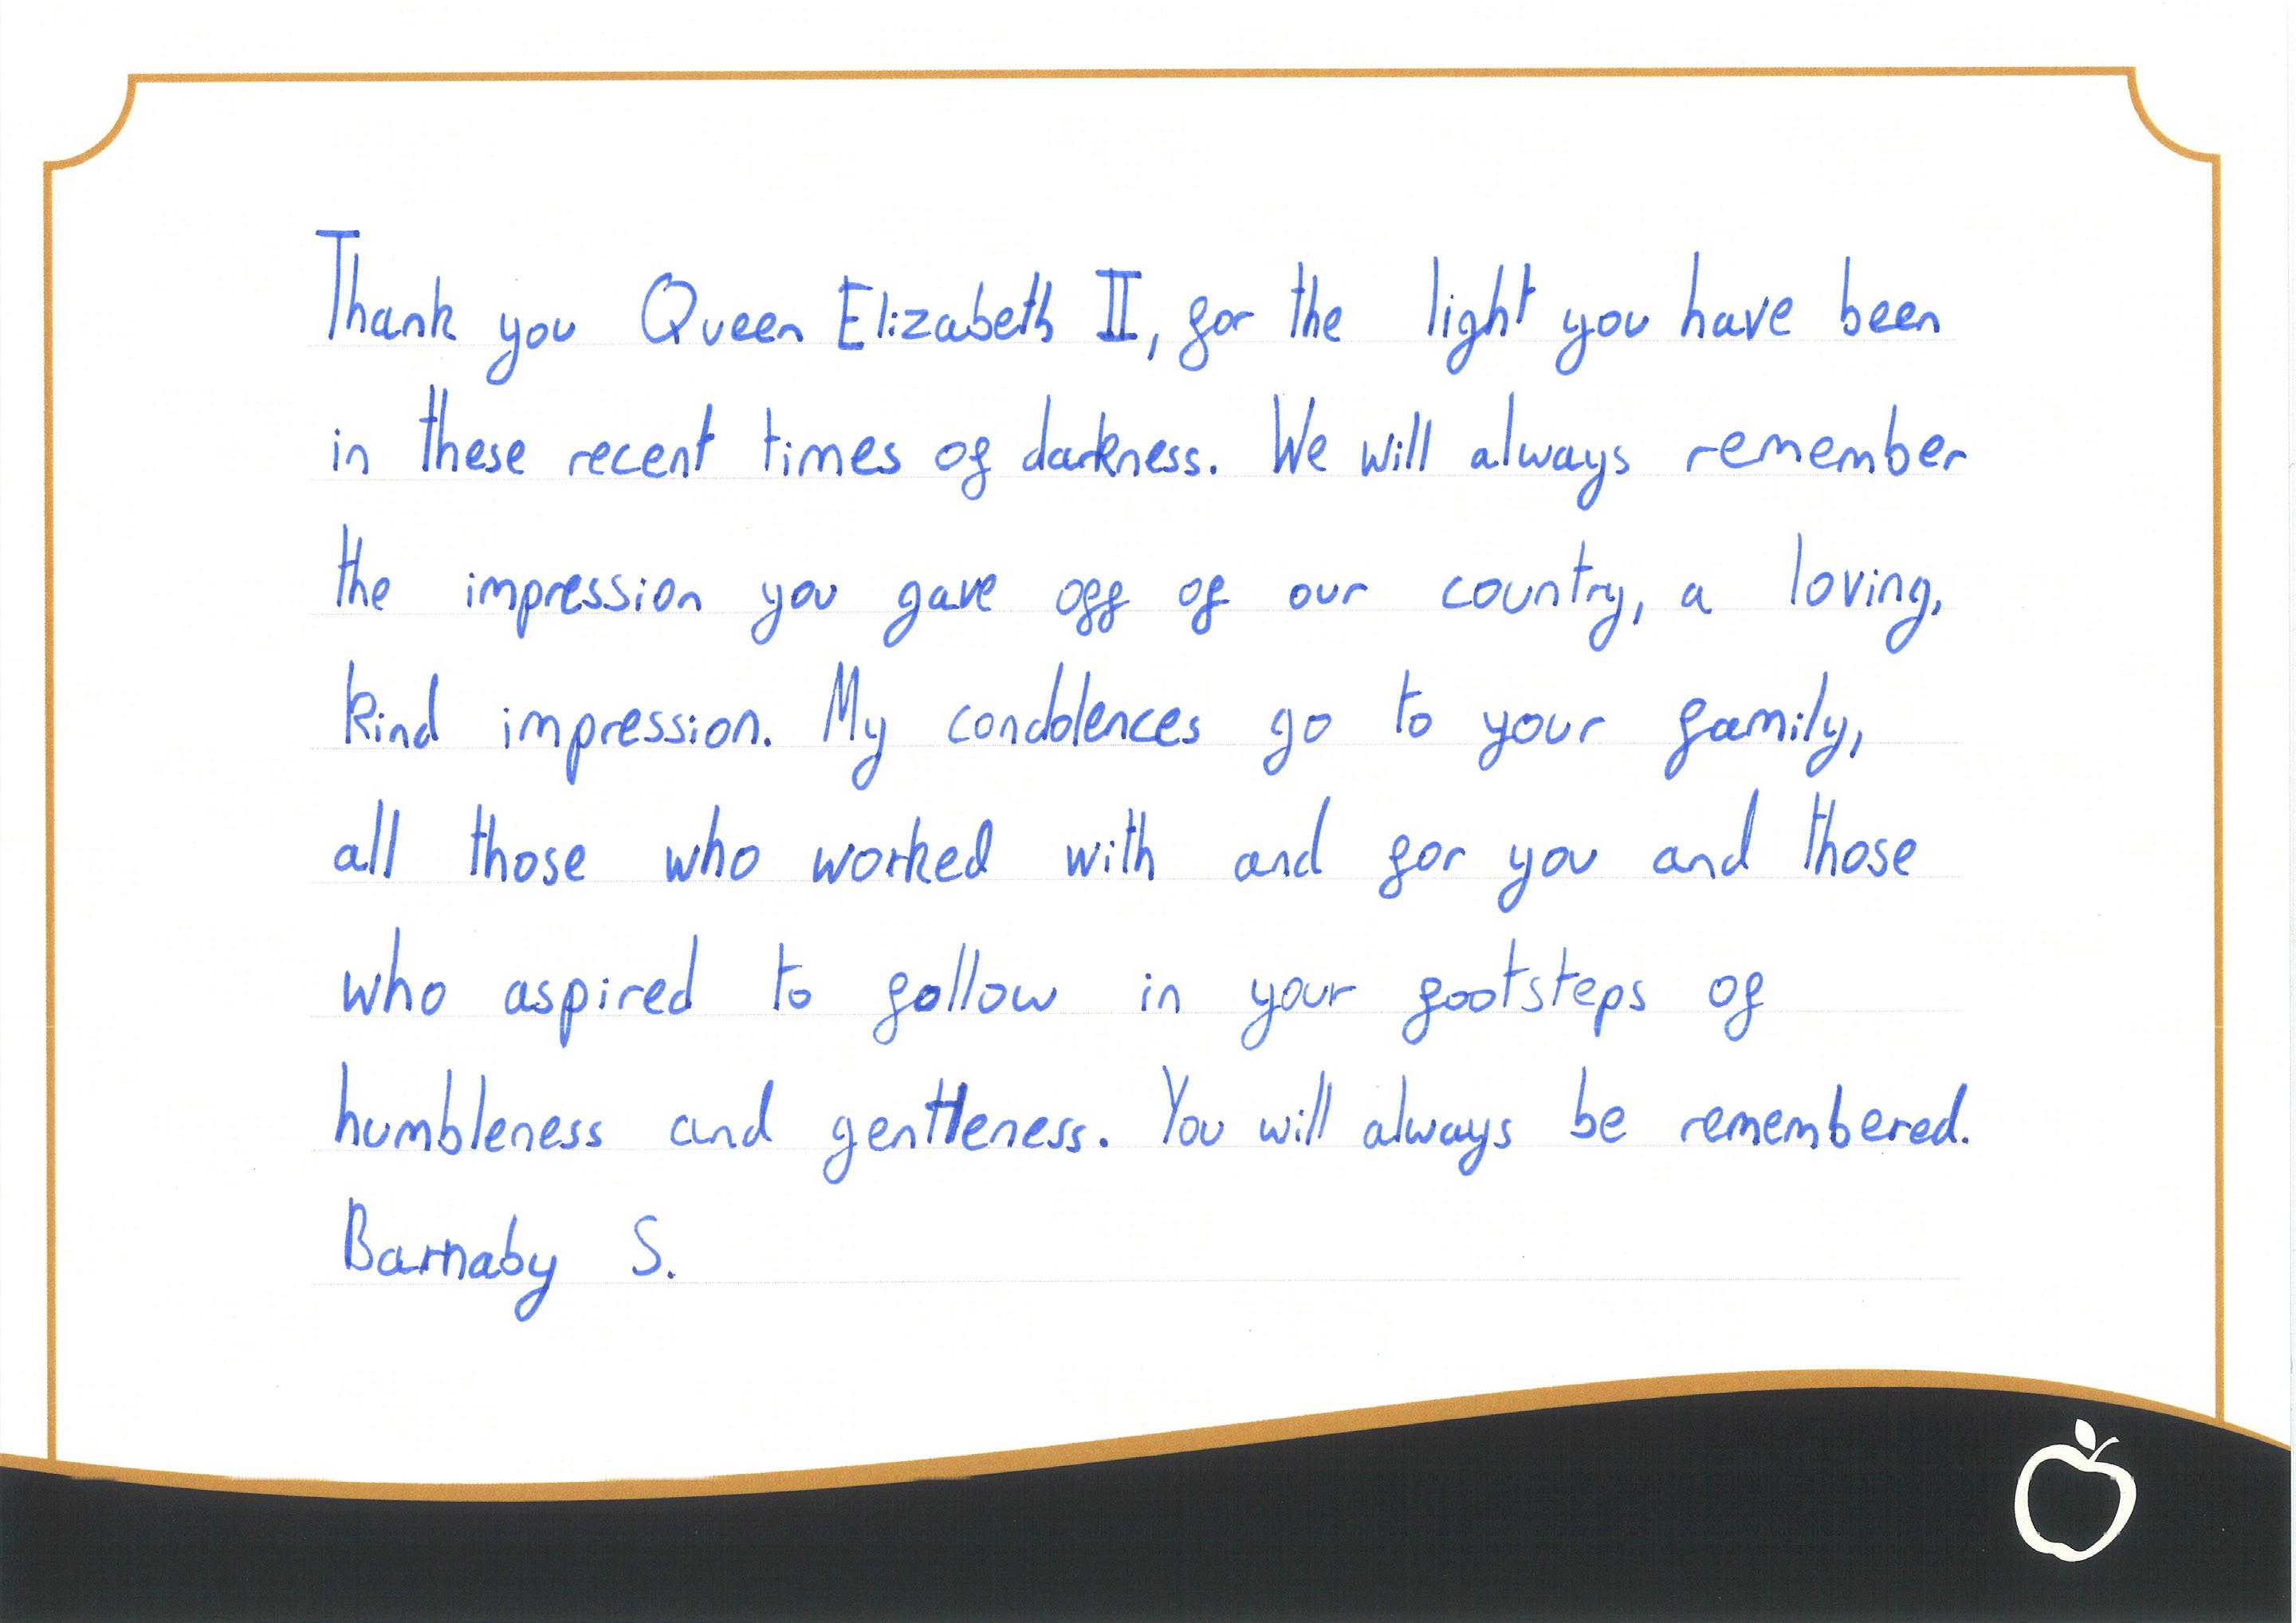 Thank you Queen Elizabeth II, for the light you have been
in these recent times of darkness. We will always remember
the impression you gave off of our country, a loving,
kind impression. My condolences go to your family,
all those who worked with and for you and those
who aspired to follow in your footsteps of
humbleness and gentleness. You will always be remembered.
Barnaby S.